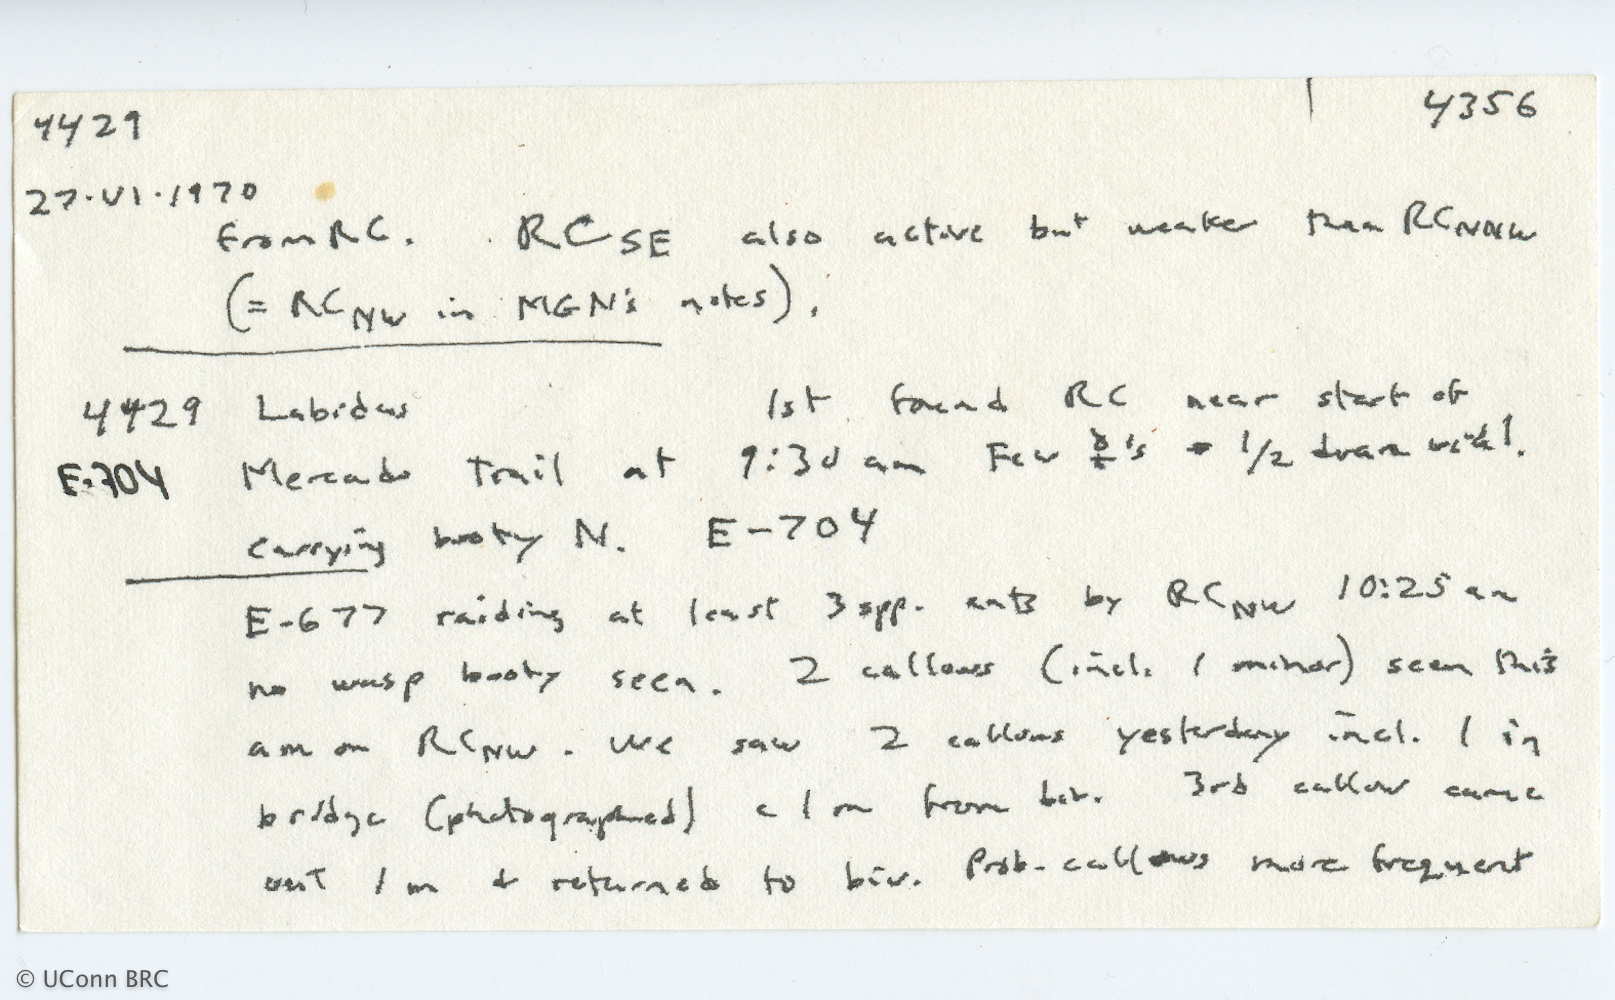 4429 4356
27·VI·1970
from RC. RC SE also active but weaker than RC NNW
(= RC NW in MGN's notes).
4429 Labidus 1st found RC near start of
E-704 Mercado Trail at 9:30 am Few ☿'s 1/2 dram vial.
carrying booty N. E-704
E-677 raiding at least 3 spp. ants by RC NW 10:25 am
no wasp booty seen. 2 callows (incl. 1 minor) seen this
am on RC NW. We saw 2 callows yesterday incl. 1 in
bridge (photographed) c 1 m from biv. 3rd callow came
out 1 m & returned to biv. Prob. callows more frequent
© UConn BRC